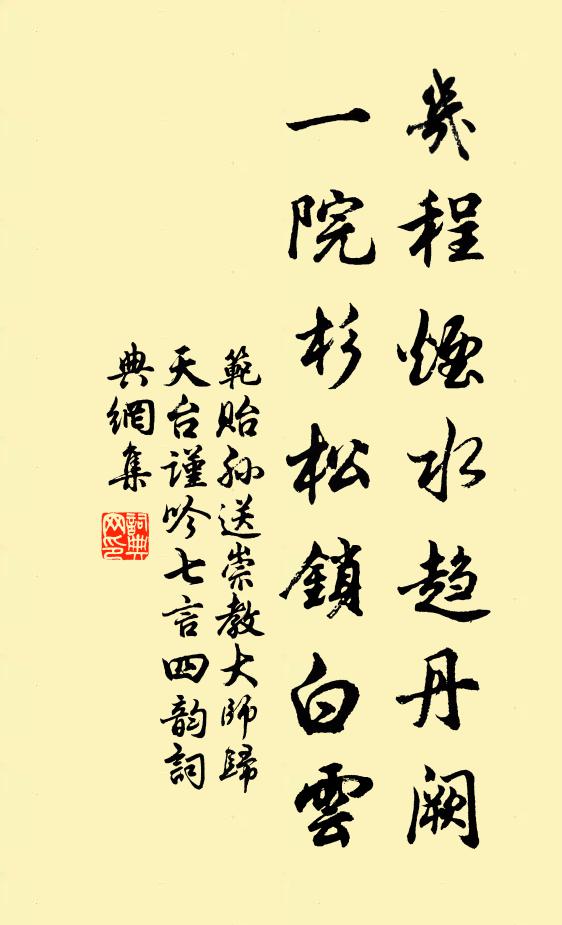 幾程煙水趋丹阙
一院杉松鎖白雲
範貽孙送崇教大师歸
天台謹吟七言四韵詞
典網集
詞典
网印